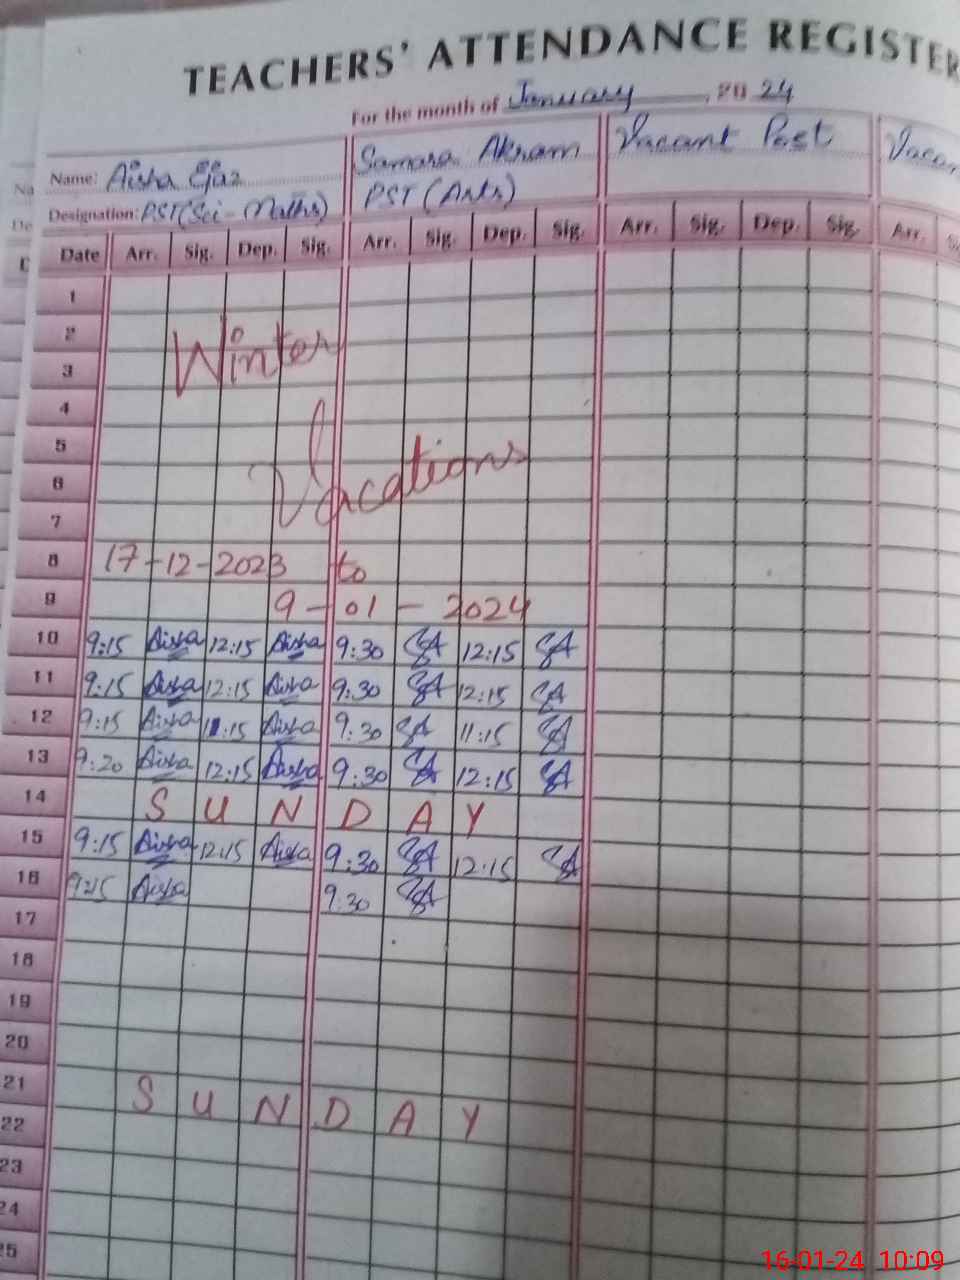 TEACHERS' ATTENDANCE REGISTER
For the month of January, 2024
Name: Aisha Ejaz Samara Akram Vacant Post Vacan
Designation: PST(Sci-Maths) PST (Arts)
Date Arr. Sig. Dep. Sig. Arr. Sig. Dep. Sig. Arr. Sig. Dep. Sig. Arr.
1
2 Winter
3
4
5 Vacations
6
7
8 17-12-2023 to
9 9-01-2024
10 9:15 Aisha 12:15 Aisha 9:30 SA 12:15 SA
11 9:15 Aisha 12:15 Aisha 9:30 SA 12:15 SA
12 9:15 Aisha 11:15 Aisha 9:30 SA 11:15 SA
13 9:20 Aisha 12:15 Aisha 9:30 SA 12:15 SA
14 S U N D A Y
15 9:15 Aisha 12:15 Aisha 9:30 SA 12:15 SA
16 9:15 Aisha 9:30 SA
17
18
19
20
21 S U N D A Y
22
23
24
25
16-01-24 10:09